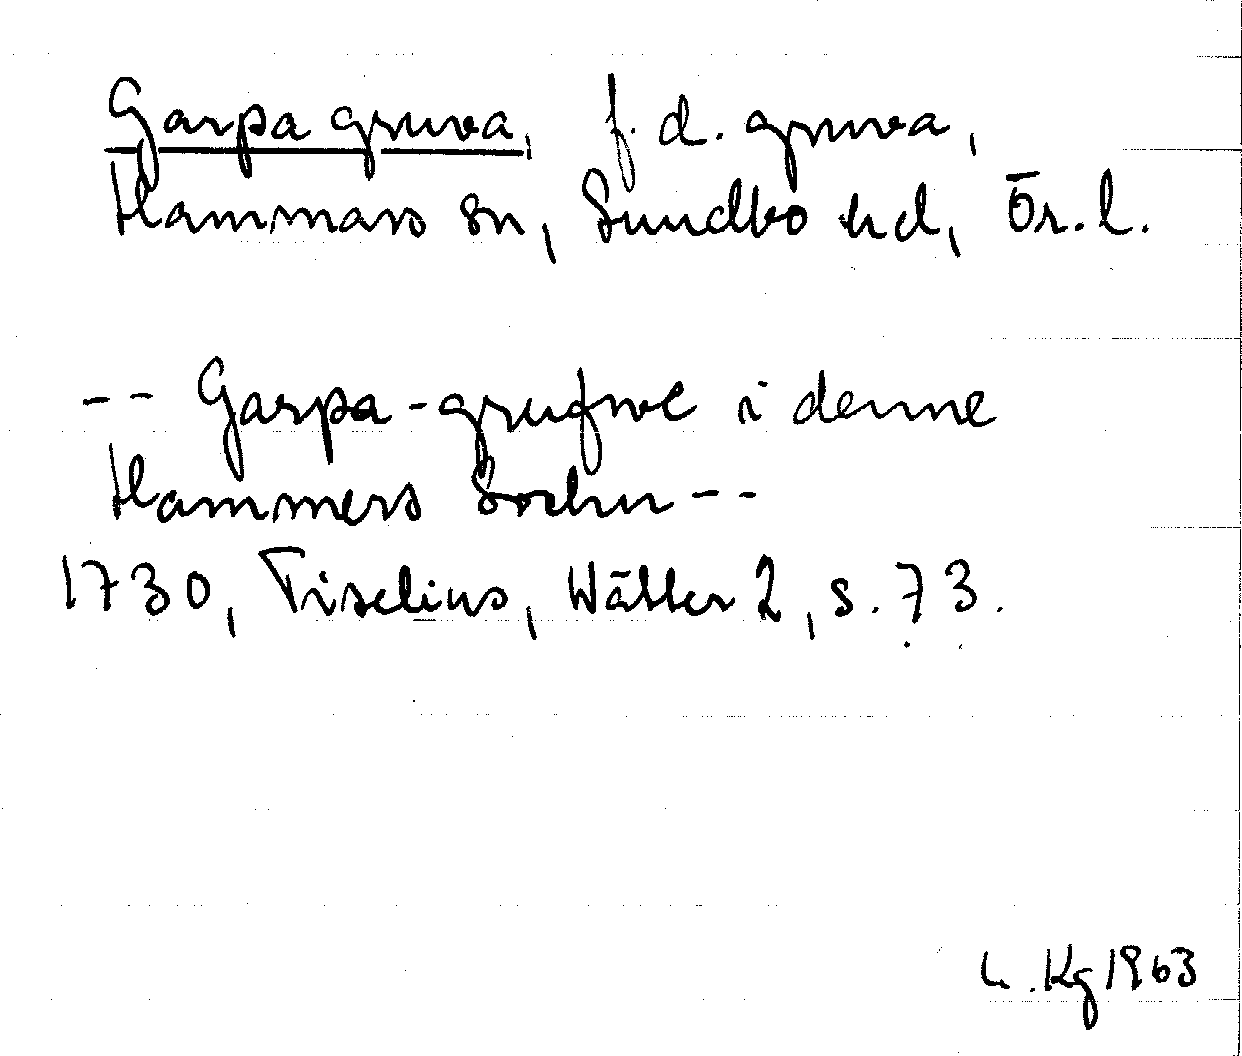 Garpa gruva, f. d. gruva,
Hammars sn, Sundbo hd, Ör. l.
-- Garpa-grufwe i denne
Hammers Sochn --
1730, Tiselius, Wätter 2, s. 73.
Kg 1963